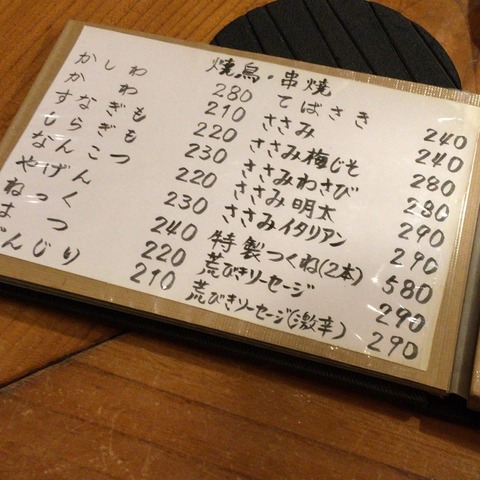 焼鳥・串焼
かしわ 280
かわ 210
すなぎも 220
しらぎも 230
なんこつ 220
やげん 230
ねっく 240
はつ 220
ぼんじり 210
てばさき 240
ささみ 240
ささみ梅じそ 280
ささみわさび 280
ささみ明太 290
ささみイタリアン 290
特製つくね(2本) 580
荒びきソーセージ 290
荒びきソーセージ(激辛) 290